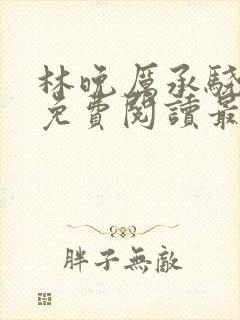 林晚厲承駿
免費閱讀最
胖子無敵